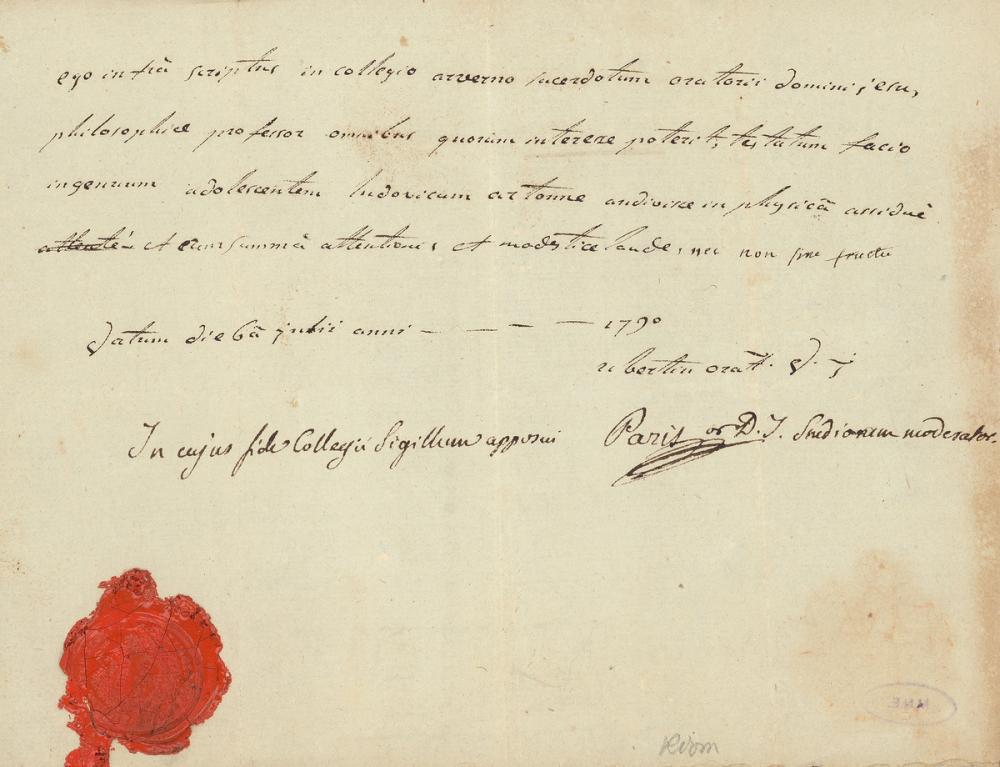 ego infrà scriptus in collegio arverno sacerdotum oratorii domini jesu,
philosophiæ professor omnibus quorum interere poterit, testatum facio
ingenuum adolescentem ludovicum artonne audivisse in physicâ assiduè
attentè et cum summâ attentionis et modestiæ laude, nec non sine fructu
Datum die 6â julii anni — — — — 1790
ubertin orat. D. j
In cujus fide Collegii Sigillum apposui
Paris or D. J. Studiorum moderator.
MNE
Riom